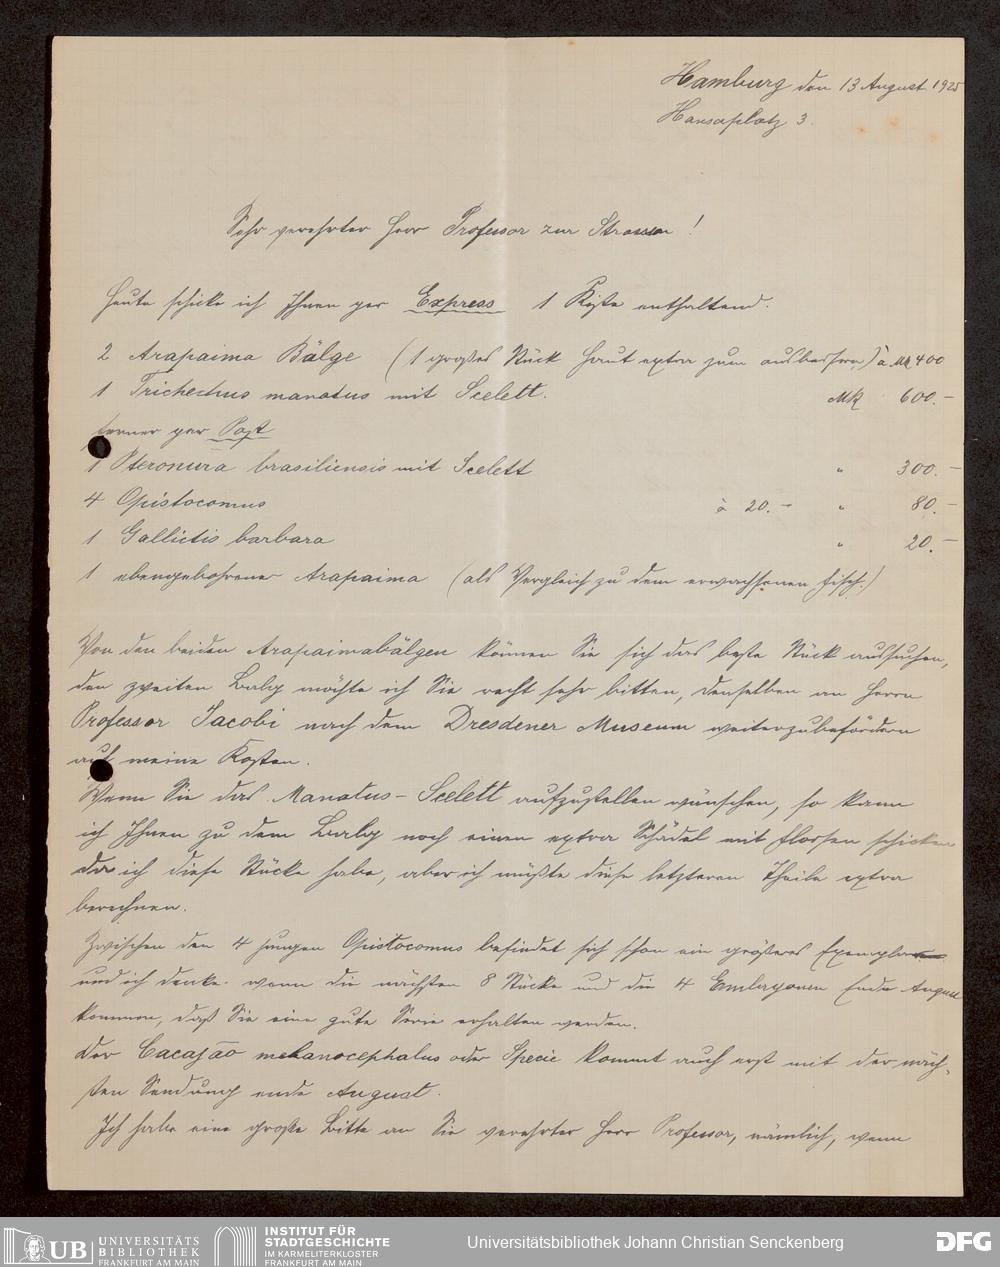 Hamburg den 13 August 1925
Hansaplatz 3.
Sehr verehrter Herr Professor zur Strassen!
Heute schicke ich Ihnen per Express 1 Kiste enthaltend.
2 Arapaima Bälge (1 großes Stück Haut extra zum ausbessern) à Mk 400
1 Trichechus manatus mit Scelett. Mk 600.–
ferner per Post
1 Pteronura brasiliensis mit Scelett " 300.–
4 Opistocomus à 20.– " 80.–
1 Gallictis barbara " 20.–
1 ebengebohrener Arapaima (als Vergleich zu dem erwachsenen Fisch.)
Von den beiden Arapaimabälgen können Sie sich das beste Stück aussuchen,
den zweiten Balg möchte ich Sie recht sehr bitten, denselben an Herrn
Professor Jacobi nach dem Dresdener Museum weiterzubefördern
auf meine Kosten.
Wenn Sie das Manatus-Scelett aufzustellen wünschen, so kann
ich Ihnen zu dem Balg noch einen extra Schädel mit Flossen schicken
da ich diese Stücke habe, aber ich müßte diese letzteren Theile extra
berechnen.
Zwischen den 4 jungen Opistocomus befindet sich schon ein größeres Exemplar
und ich denke wenn die nächsten 8 Stücke und die 4 Embryonen Ende August
kommen, daß Sie eine gute Serie erhalten werden.
Der Cacajáo melanocephalus oder Specie kommt auch erst mit der näch-
sten Sendung ende August.
Ich habe eine große Bitte an Sie verehrter Herr Professor, nämlich, wenn
UB UNIVERSITÄTS
BIBLIOTHEK
FRANKFURT AM MAIN
INSTITUT FÜR
STADTGESCHICHTE
IM KARMELITERKLOSTER
FRANKFURT AM MAIN
Universitätsbibliothek Johann Christian Senckenberg
DFG